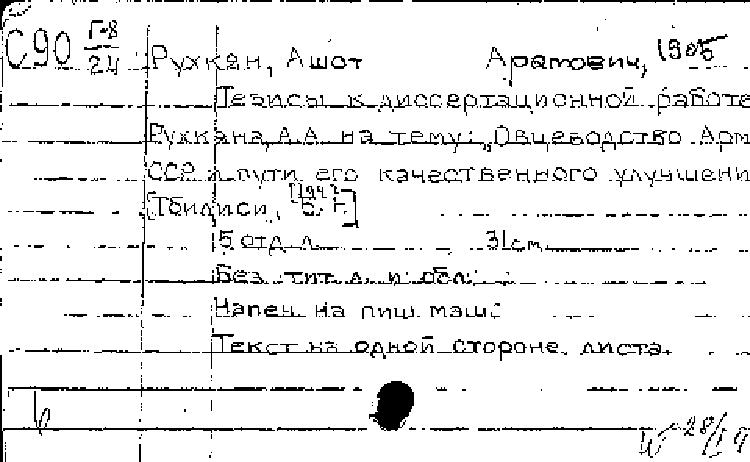 С90 Г-8/24
Рухкян, Ашот Аратович, 1905
Тезисы к диссертационной работе
Рухкяна, А.А. на тему: „Овцеводство Арм
ССР и пути его качественного улучшени
[Тбилиси, Б. г.]
15 отд. л. 31 см
Без тит. л. и обл.
Напеч. на пиш. маш.
Текст на одной стороне листа.